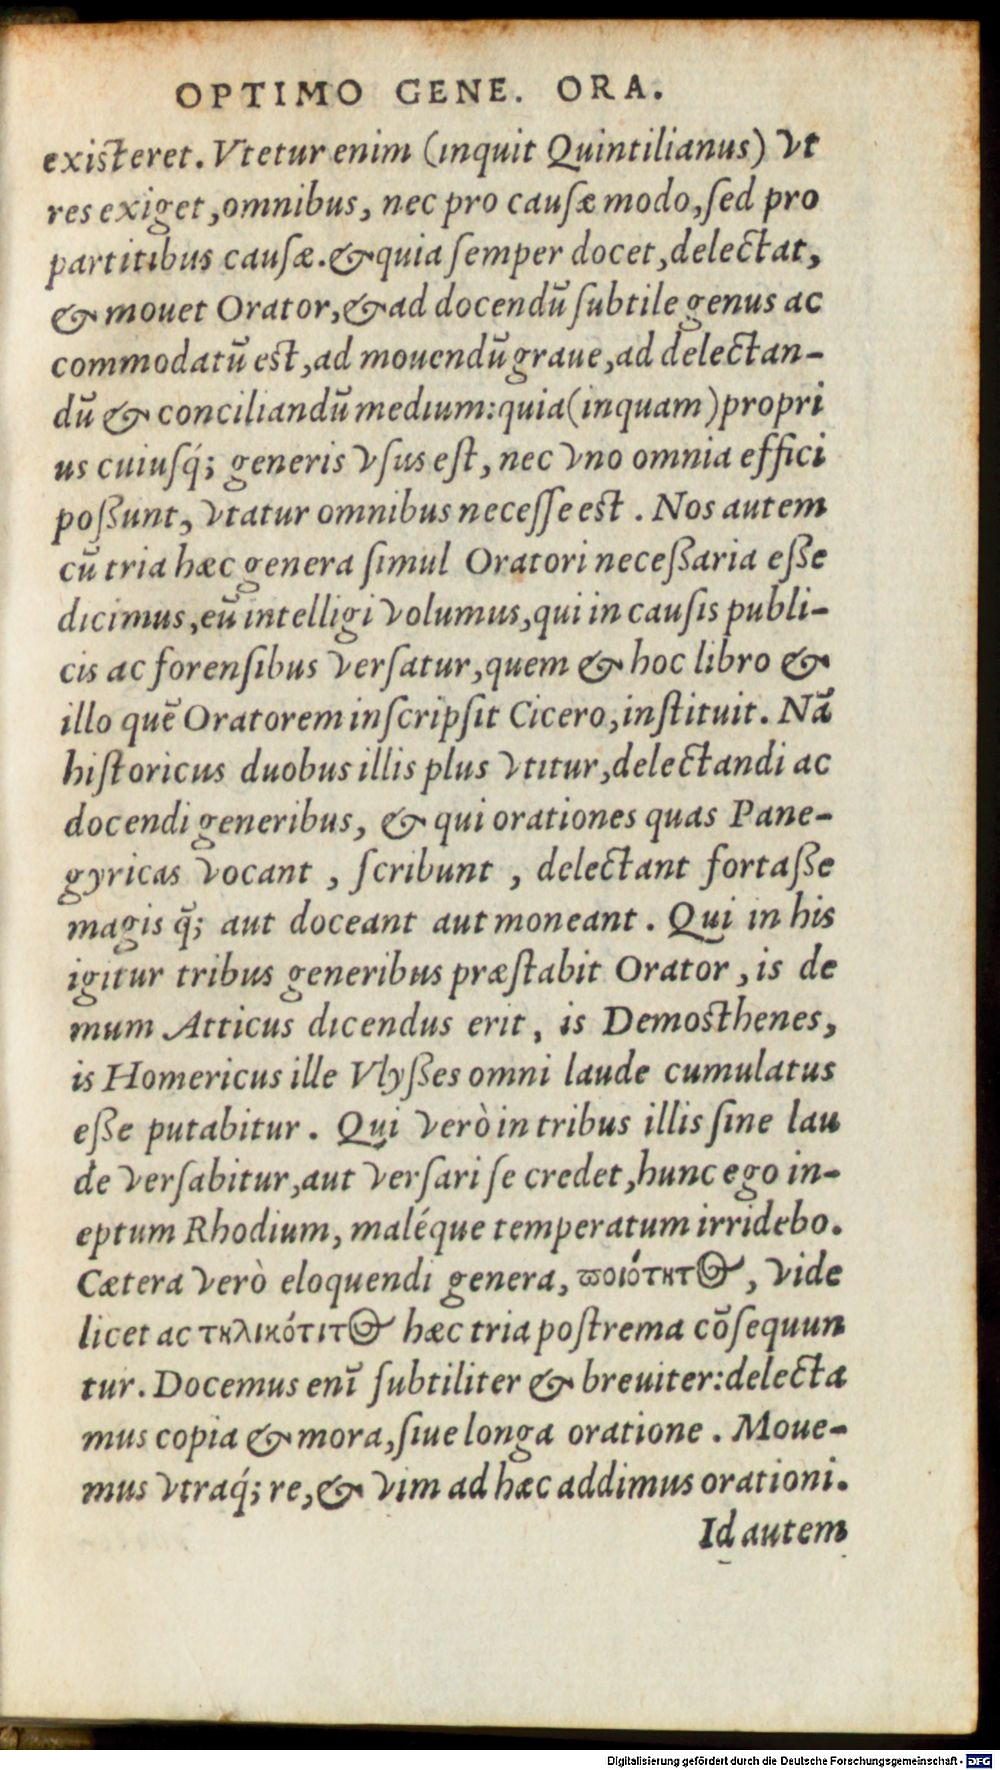 OPTIMO GENE. ORA.
exiſteret. Vtetur enim (inquit Quintilianus) vt
res exiget, omnibus, nec pro cauſæ modo, ſed pro
partitibus cauſæ. & quia ſemper docet, delectat,
& mouet Orator, & ad docendũ ſubtile genus ac
commodatũ est, ad mouendũ graue, ad delectan-
dũ & conciliandũ medium: quia (inquam) propri
us cuiuſq́; generis vſus eſt, nec vno omnia effici
poßunt, vtatur omnibus neceſſe est. Nos autem
cũ tria hæc genera ſimul Oratori neceßaria eße
dicimus, eũ intelligi volumus, qui in cauſis publi-
cis ac forenſibus verſatur, quem & hoc libro &
illo quẽ Oratorem inſcripſit Cicero, inſtituit. Nã
hiſtoricus duobus illis plus vtitur, delectandi ac
docendi generibus, & qui orationes quas Pane-
gyricas vocant, ſcribunt, delectant fortaße
magis q̃; aut doceant aut moneant. Qui in his
igitur tribus generibus præſtabit Orator, is de
mum Atticus dicendus erit, is Demosthenes,
is Homericus ille Vlyßes omni laude cumulatus
eße putabitur. Qui verò in tribus illis ſine lau
de verſabitur, aut verſari ſe credet, hunc ego in-
eptum Rhodium, maléque temperatum irridebo.
Cætera verò eloquendi genera, ποιότητος, vide
licet ac τηλικότιτος hæc tria poſtrema cõſequun
tur. Docemus enĩ ſubtiliter & breuiter: delecta
mus copia & mora, ſiue longa oratione. Moue-
mus vtraq́; re, & vim ad hæc addimus orationi.
Id autem
Digitalisierung gefördert durch die Deutsche Forschungsgemeinschaft - DFG